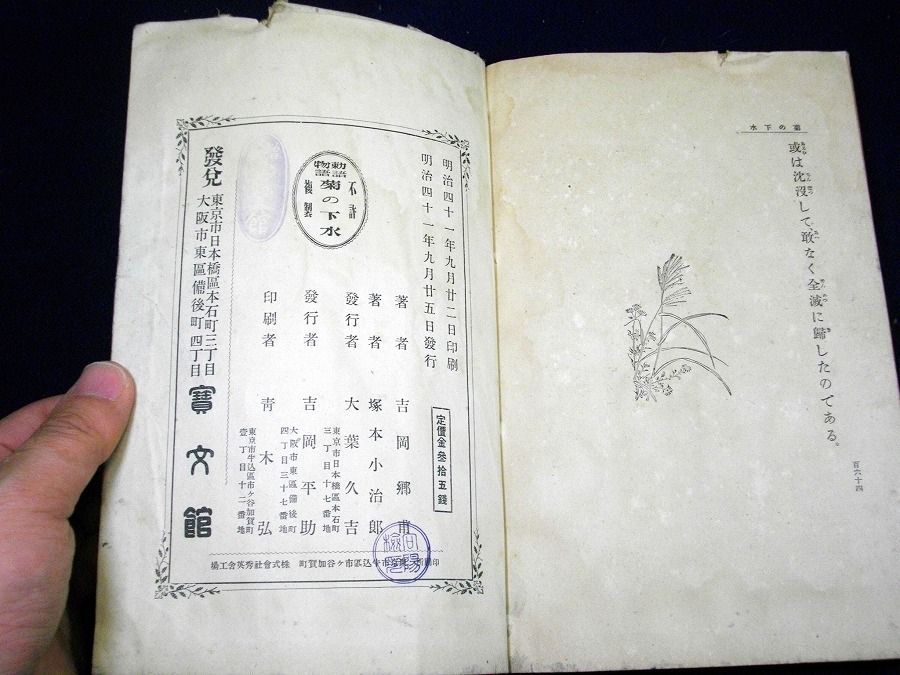 菊の下水
或は沈沒して、敢なく全滅に歸したのである。
百六十四
明治四十一年九月廿二日印刷
明治四十一年九月廿五日發行
定價金參拾五錢
不許
複製
勅語
物語
菊の下水
著者 吉岡鄉甫
著者 塚本小治郎
發行者 大葉久吉
東京市日本橋區本石町
三丁目十七番地
發行者 吉岡平助
大阪市東區備後町
四丁目三十七番地
印刷者 青木弘
東京市牛込區市ヶ谷加賀町
壹丁目十二番地
牛込區市ヶ谷加賀町 株式會社秀英舍工場
發兌
東京市日本橋區本石町三丁目
大阪市東區備後町四丁目
寶文館